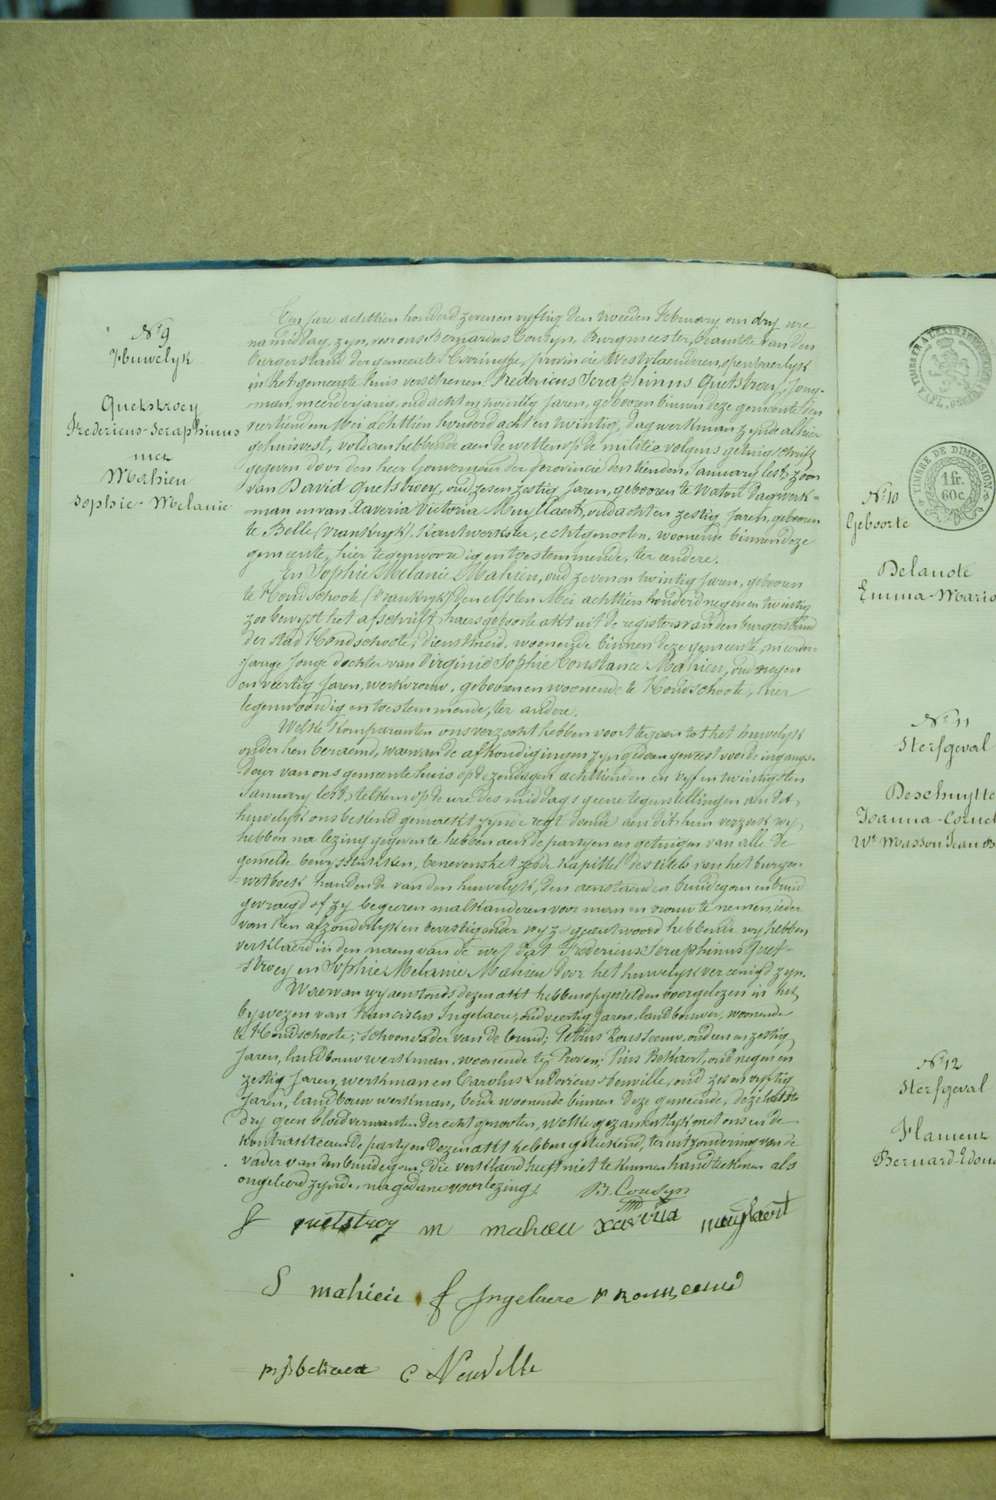 N.º 9
Huwelyk
Quetstroey
Fredericus-Seraphinus
met
Mahieu
Sophie-Melanie
Ten jare achttien honderd zeven en vyftig den tweeden February om dry ure
namiddag, zyn voor ons Bernardus Cousyn, Burgmeester, beambte van den
burgerstand der gemeente Proven, provincie Westvlaenderen, openbaerlyk
in het gemeente huis verschenen Fredericus Seraphinus Quetstroey, jong-
man, meerderjarig, oud acht en twintig jaren, geboren binnen deze gemeente den
Mei achttien honderd acht en twintig, dagwerkman zynde alhier
gehuisvest, voldaen hebbende aen de wetten op de militie volgens getuigschrift
gegeven door den heer Gouverneur der provincie den tienden January lest, zoon
van David Quetstroey, oud zes en zestig jaren, geboren te Watou, dagwerk-
man en van Xaveria Victoria Muyllaert, oud acht en zestig jaren, geboren
te Belle (Vrankryk), kantwerkster, echtgenooten, woonende binnen deze
gemeente, hier tegenwoordig en toestemmende, ter andere.
En Sophie Melanie Mahieu, oud zeven en twintig jaren, geboren
te Hondschoote (Vrankryk) den elfsten Mei achttien honderd negen en twintig
zoo bewyst het afschrift haers geboorte akt uit de registers van den burgerstand
der stad Hondschoote, dienstmeid, woonende binnen deze gemeente, meerder-
jarige jonge dochter van Virginie Sophie Constance Mahieu, oud negen
en veertig jaren, werkvrouw, geboren en woonende te Hondschoote, hier
tegenwoordig en toestemmende, ter andere.
Welke komparanten ons verzocht hebben voort te gaen tot het huwelyk
onder hen beraemd, waervan de afkondigingen zyn gedaen geweest voor de ingangs-
deur van ons gemeentehuis op de zondagen achttienden en vyf en twintigsten
January lest, telkens op de ure des middags geene tegenstellingen aen dit
huwelyk ons bekend gemaekt zynde regt doende aen dit hun verzoek wy,
hebben na lezing gegeven te hebben aen de partyen en getuigen van alle de
gemelde bewysstukken, benevens het zesde kapittel des titels van het burger-
-wetboek handende van den huwelyk, den aenstaenden bruidegom en bruid
gevraegd of zy begeeren malkanderen voor man en vrouw te nemen, ieder
van hen afzonderlyk en bevestigender wyze geantwoord hebbende wy hebben
verklaerd in den naem van de wet dat Fredericus Seraphinus Quet-
-stroey en Sophie Melanie Mahieu door het huwelyk vereenigd zyn.
Waervan wy aenstonds dezen akt hebben opgesteld en voorgelezen in het
bywezen van Franciscus Ingelaere, oud veertig jaren, landbouwer, woonende
te Hondschoote, schoonvader van de bruid; Petrus Rousseeuw, oud een en zestig
jaren, landbouwwerkman, woonende te Proven; Pius Behaert, oud negen en
zestig jaren, werkman en Carolus Ludovicus Neuville, oud zes en vyftig
jaren, landbouwwerkman, beide woonende binnen deze gemeente, deze laetste
dry geen bloedverwanten der echtgenooten, welke gezamentlyk met ons en de
kontrakteerende partyen dezen akt hebben geteekend, ter uitzondering van de
vader van den bruidegom, die verklaerd heeft niet te kunnen handteekenen als
ongeleerd zynde, na gedane voorlezing.
B. Cousyn
f quetstroy m mahieu xavria muyllaert
S mahieu f Ingelaere P Rousseeuw
p j behaert C Neuville
TIMBRE DE DIMENSION
1 fr.
60 c.
N.º 10
Geboorte
Delaude
Emma-Maria
N.º 11
Sterfgeval
Deschuytte
Joanna-Cornel
Wº Masson Jean B
N.º 12
Sterfgeval
Flameur
Bernard-Edou